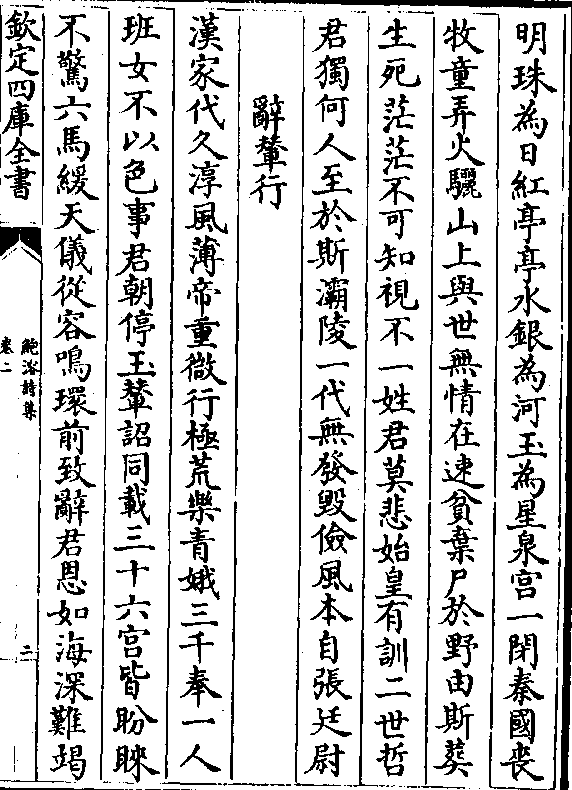 明珠為日紅亭亭水銀為河玉為星泉宫一閉秦國喪
牧童弄火驪山上與世無情在速貧棄尸於野由斯葬
生死茫茫不可知視不一姓君莫悲始皇有訓二世哲
君獨何人至於斯灞陵一代無發毀儉風本自張廷尉
辭輦行
漢家代久淳風薄帝重微行極荒樂青娥三千奉一人
班女不以色事君朝停玉輦詔同載三十六宫皆盼睞
不驚六馬緩天儀從容鳴環前致辭君恩如海深難竭
欽定四庫全書
鮑溶詩集
卷二
二